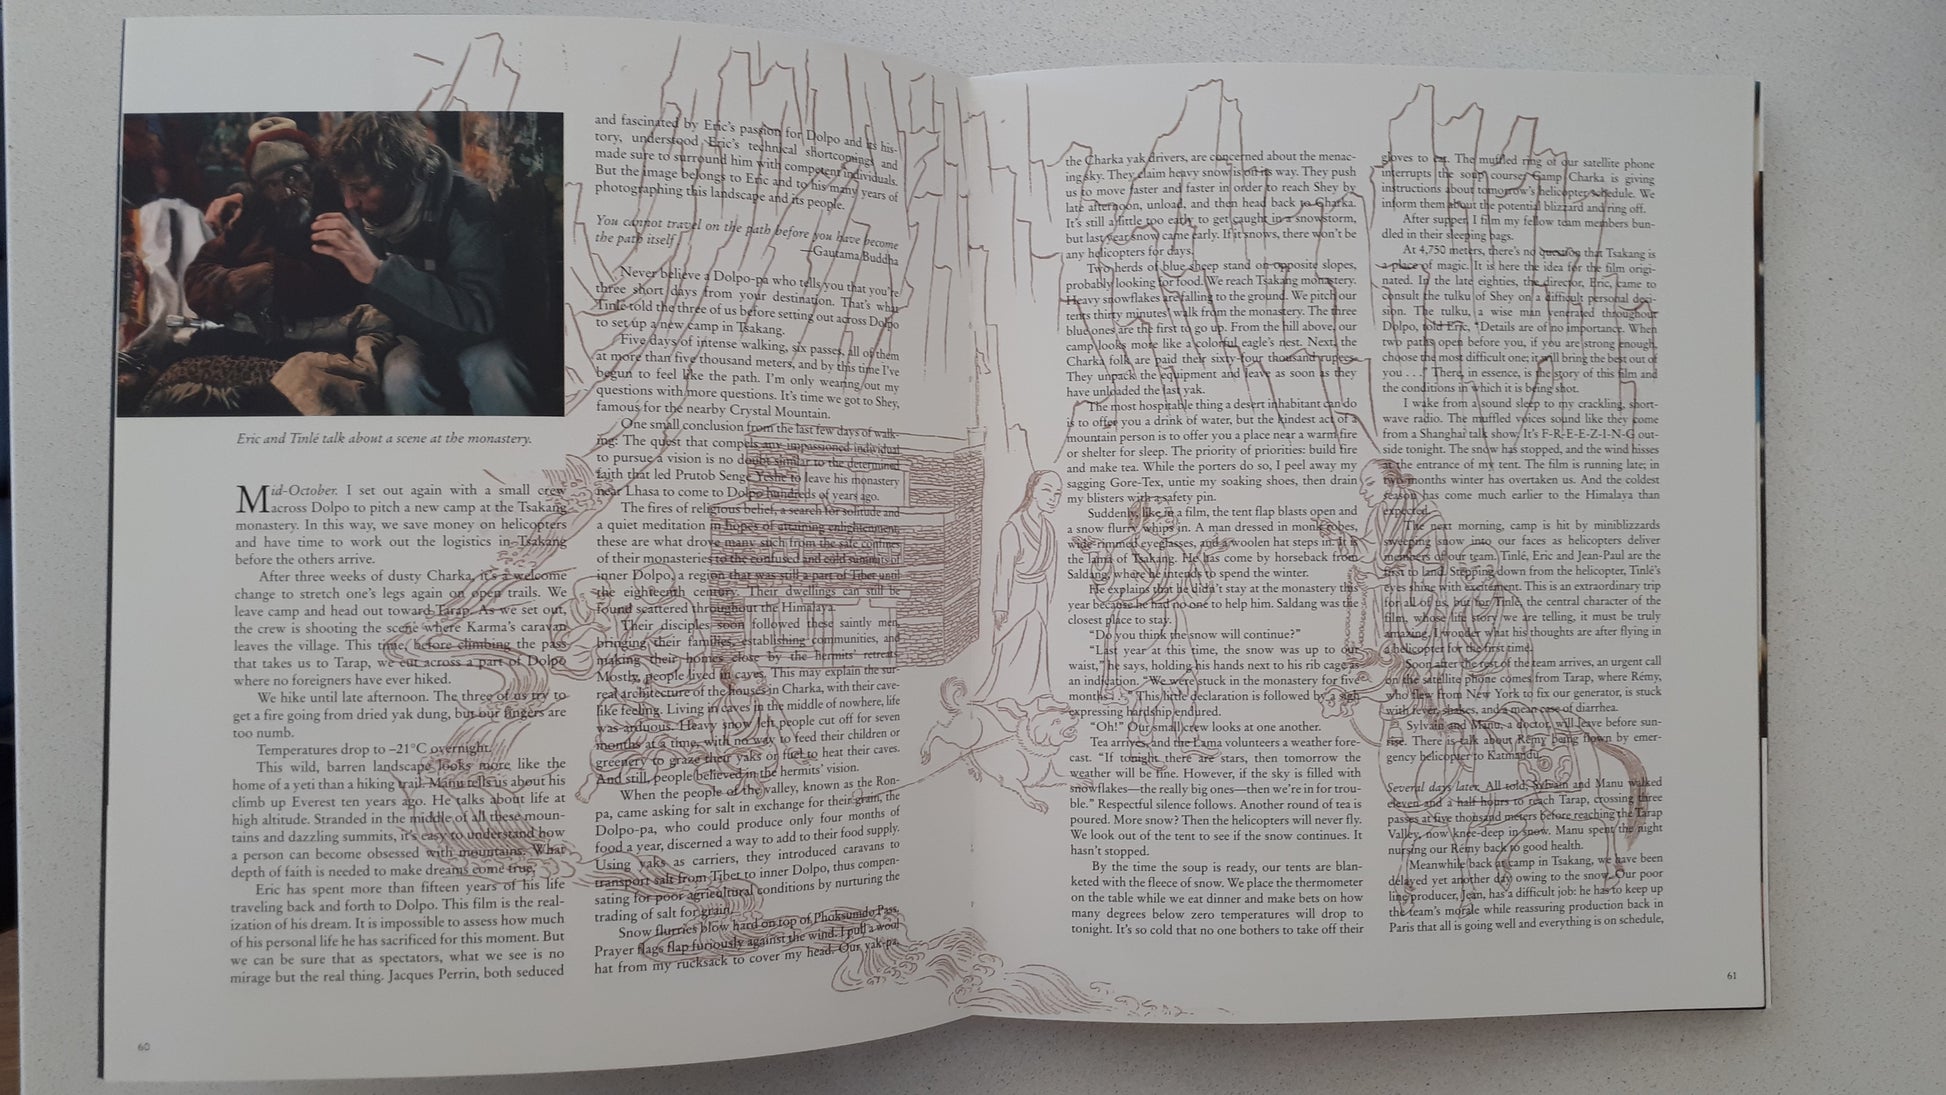 Eric and Tinlé talk about a scene at the monastery.
Mid-October. I set out again with a small crew
across Dolpo to pitch a new camp at the Tsakang
monastery. In this way, we save money on helicopters
and have time to work out the logistics in Tsakang
before the others arrive.
After three weeks of dusty Charka, it's a welcome
change to stretch one's legs again on open trails. We
leave camp and head out toward Tarap. As we set out,
the crew is shooting the scene where Karma's caravan
leaves the village. This time, before climbing the pass
that takes us to Tarap, we cut across a part of Dolpo
where no foreigners have ever hiked.
We hike until late afternoon. The three of us try to
get a fire going from dried yak dung, but our fingers are
too numb.
Temperatures drop to –21°C overnight.
This wild, barren landscape looks more like the
home of a yeti than a hiking trail. Manu tells us about his
climb up Everest ten years ago. He talks about life at
high altitude. Stranded in the middle of all these moun-
tains and dazzling summits, it's easy to understand how
a person can become obsessed with mountains. What
depth of faith is needed to make dreams come true.
Eric has spent more than fifteen years of his life
traveling back and forth to Dolpo. This film is the real-
ization of his dream. It is impossible to assess how much
of his personal life he has sacrificed for this moment. But
we can be sure that as spectators, what we see is no
mirage but the real thing. Jacques Perrin, both seduced
60
and fascinated by Eric's passion for Dolpo and its his-
tory, understood Eric's technical shortcomings and
made sure to surround him with competent individuals.
But the image belongs to Eric and to his many years of
photographing this landscape and its people.
You cannot travel on the path before you have become
the path itself.
—Gautama Buddha
Never believe a Dolpo-pa who tells you that you're
three short days from your destination. That's what
Tinlé told the three of us before setting out across Dolpo
to set up a new camp in Tsakang.
Five days of intense walking, six passes, all of them
at more than five thousand meters, and by this time I've
begun to feel like the path. I'm only wearing out my
questions with more questions. It's time we got to Shey,
famous for the nearby Crystal Mountain.
One small conclusion from the last few days of walk-
ing: The quest that compels any impassioned individual
to pursue a vision is no doubt similar to the determined
faith that led Prutob Senge Yeshe to leave his monastery
near Lhasa to come to Dolpo hundreds of years ago.
The fires of religious belief, a search for solitude and
a quiet meditation in hopes of attaining enlightenment,
these are what drove many such from the safe confines
of their monasteries to the confused and cold summits of
inner Dolpo, a region that was still a part of Tibet until
the eighteenth century. Their dwellings can still be
found scattered throughout the Himalaya.
Their disciples soon followed these saintly men,
bringing their families, establishing communities, and
making their homes close by the hermits' retreats.
Mostly, people lived in caves. This may explain the sur-
real architecture of the houses in Charka, with their cave-
like feeling. Living in caves in the middle of nowhere, life
was arduous. Heavy snow left people cut off for seven
months at a time, with no way to feed their children or
greenery to graze their yaks or fuel to heat their caves.
And still, people believed in the hermits' vision.
When the people of the valley, known as the Ron-
pa, came asking for salt in exchange for their grain, the
Dolpo-pa, who could produce only four months of
food a year, discerned a way to add to their food supply.
Using yaks as carriers, they introduced caravans to
transport salt from Tibet to inner Dolpo, thus compen-
sating for poor agricultural conditions by nurturing the
trading of salt for grain.
Snow flurries blow hard on top of Phoksumdo Pass.
Prayer flags flap furiously against the wind. I pull a wool
hat from my rucksack to cover my head. Our yak-pa,
the Charka yak drivers, are concerned about the menac-
ing sky. They claim heavy snow is on its way. They push
us to move faster and faster in order to reach Shey by
late afternoon, unload, and then head back to Charka.
It's still a little too early to get caught in a snowstorm,
but last year snow came early. If it snows, there won't be
any helicopters for days.
Two herds of blue sheep stand on opposite slopes,
probably looking for food. We reach Tsakang monastery.
Heavy snowflakes are falling to the ground. We pitch our
tents thirty minutes' walk from the monastery. The three
blue ones are the first to go up. From the hill above, our
camp looks more like a colorful eagle's nest. Next, the
Charka folk are paid their sixty-four thousand rupees.
They unpack the equipment and leave as soon as they
have unloaded the last yak.
The most hospitable thing a desert inhabitant can do
is to offer you a drink of water, but the kindest act of a
mountain person is to offer you a place near a warm fire
or shelter for sleep. The priority of priorities: build fire
and make tea. While the porters do so, I peel away my
sagging Gore-Tex, untie my soaking shoes, then drain
my blisters with a safety pin.
Suddenly, like in a film, the tent flap blasts open and
a snow flurry whips in. A man dressed in monk robes,
wide-rimmed eyeglasses, and a woolen hat steps in. It is
the lama of Tsakang. He has come by horseback from
Saldang, where he intends to spend the winter.
He explains that he didn't stay at the monastery this
year because he had no one to help him. Saldang was the
closest place to stay.
"Do you think the snow will continue?"
"Last year at this time, the snow was up to our
waist," he says, holding his hands next to his rib cage as
an indication. "We were stuck in the monastery for five
months . . ." This little declaration is followed by a sigh
expressing hardship endured.
"Oh!" Our small crew looks at one another.
Tea arrives, and the Lama volunteers a weather fore-
cast. "If tonight there are stars, then tomorrow the
weather will be fine. However, if the sky is filled with
snowflakes—the really big ones—then we're in for trou-
ble." Respectful silence follows. Another round of tea is
poured. More snow? Then the helicopters will never fly.
We look out of the tent to see if the snow continues. It
hasn't stopped.
By the time the soup is ready, our tents are blan-
keted with the fleece of snow. We place the thermometer
on the table while we eat dinner and make bets on how
many degrees below zero temperatures will drop to
tonight. It's so cold that no one bothers to take off their
gloves to eat. The muffled ring of our satellite phone
interrupts the soup course. Camp Charka is giving
instructions about tomorrow's helicopter schedule. We
inform them about the potential blizzard and ring off.
After supper, I film my fellow team members bun-
dled in their sleeping bags.
At 4,750 meters, there's no question that Tsakang is
a place of magic. It is here the idea for the film origi-
nated. In the late eighties, the director, Eric, came to
consult the tulku of Shey on a difficult personal deci-
sion. The tulku, a wise man venerated throughout
Dolpo, told Eric, "Details are of no importance. When
two paths open before you, if you are strong enough,
choose the most difficult one; it will bring the best out of
you . . ." There, in essence, is the story of this film and
the conditions in which it is being shot.
I wake from a sound sleep to my crackling, short-
wave radio. The muffled voices sound like they come
from a Shanghai talk show. It's F-R-E-E-Z-I-N-G out-
side tonight. The snow has stopped, and the wind hisses
at the entrance of my tent. The film is running late; in
two months winter has overtaken us. And the coldest
season has come much earlier to the Himalaya than
expected.
The next morning, camp is hit by miniblizzards
sweeping snow into our faces as helicopters deliver
members of our team. Tinlé, Eric and Jean-Paul are the
first to land. Stepping down from the helicopter, Tinlé's
eyes shine with excitement. This is an extraordinary trip
for all of us, but for Tinlé, the central character of the
film, whose life story we are telling, it must be truly
amazing. I wonder what his thoughts are after flying in
a helicopter for the first time.
Soon after the rest of the team arrives, an urgent call
on the satellite phone comes from Tarap, where Rémy,
who flew from New York to fix our generator, is stuck
with fever, shakes, and a mean case of diarrhea.
Sylvain and Manu, a doctor, will leave before sun-
rise. There is talk about Rémy being flown by emer-
gency helicopter to Katmandu.
Several days later. All told, Sylvain and Manu walked
eleven and a half hours to reach Tarap, crossing three
passes at five thousand meters before reaching the Tarap
Valley, now knee-deep in snow. Manu spent the night
nursing our Rémy back to good health.
Meanwhile back at camp in Tsakang, we have been
delayed yet another day owing to the snow. Our poor
line producer, Jean, has a difficult job: he has to keep up
the team's morale while reassuring production back in
Paris that all is going well and everything is on schedule,
61